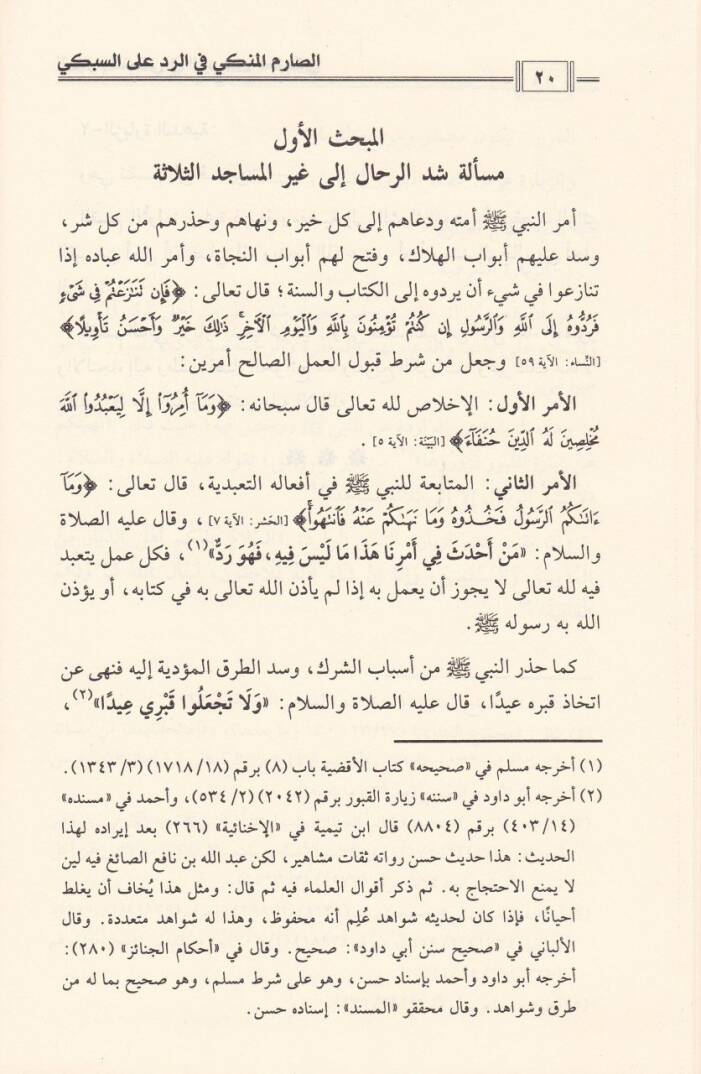 الصارم المنكي في الرد على السبكي
٢٠
المبحث الأول
مسألة شد الرحال إلى غير المساجد الثلاثة
أمر النبي ﷺ أمته ودعاهم إلى كل خير، ونهاهم وحذرهم من كل شر،
وسد عليهم أبواب الهلاك، وفتح لهم أبواب النجاة، وأمر الله عباده إذا
تنازعوا في شيء أن يردوه إلى الكتاب والسنة؛ قال تعالى: ﴿فَإِن تَنَٰزَعۡتُمۡ فِي شَيۡءٖ
فَرُدُّوهُ إِلَى ٱللَّهِ وَٱلرَّسُولِ إِن كُنتُمۡ تُؤۡمِنُونَ بِٱللَّهِ وَٱلۡيَوۡمِ ٱلۡأٓخِرِۚ ذَٰلِكَ خَيۡرٞ وَأَحۡسَنُ تَأۡوِيلًا﴾
[النِّساء: الآية ٥٩] وجعل من شرط قبول العمل الصالح أمرين:
الأمر الأول: الإخلاص لله تعالى قال سبحانه: ﴿وَمَآ أُمِرُوٓاْ إِلَّا لِيَعۡبُدُواْ ٱللَّهَ
مُخۡلِصِينَ لَهُ ٱلدِّينَ حُنَفَآءَ﴾ [البَيّنَة: الآية ٥].
الأمر الثاني: المتابعة للنبي ﷺ في أفعاله التعبدية، قال تعالى: ﴿وَمَآ
ءَاتَىٰكُمُ ٱلرَّسُولُ فَخُذُوهُ وَمَا نَهَىٰكُمۡ عَنۡهُ فَٱنتَهُواْۚ﴾ [الحَشر: الآية ٧]، وقال عليه الصلاة
والسلام: «مَنْ أَحْدَثَ فِي أَمْرِنَا هَذَا مَا لَيْسَ فِيهِ، فَهُوَ رَدٌّ»(١)، فكل عمل يتعبد
فيه لله تعالى لا يجوز أن يعمل به إذا لم يأذن الله تعالى به في كتابه، أو يؤذن
الله به رسوله ﷺ.
كما حذر النبي ﷺ من أسباب الشرك، وسد الطرق المؤدية إليه فنهى عن
اتخاذ قبره عيدًا، قال عليه الصلاة والسلام: «وَلَا تَجْعَلُوا قَبْرِي عِيدًا»(٢)،
(١) أخرجه مسلم في «صحيحه» كتاب الأقضية باب (٨) برقم (١٧١٨/١٨) (١٣٤٣/٣).
(٢) أخرجه أبو داود في «سننه» زيارة القبور برقم (٢٠٤٢) (٥٣٤/٢)، وأحمد في «مسنده»
(٤٠٣/١٤) برقم (٨٨٠٤) قال ابن تيمية في «الإخنائية» (٢٦٦) بعد إيراده لهذا
الحديث: هذا حديث حسن رواته ثقات مشاهير، لكن عبد الله بن نافع الصائغ فيه لين
لا يمنع الاحتجاج به. ثم ذكر أقوال العلماء فيه ثم قال: ومثل هذا يُخاف أن يغلط
أحيانًا، فإذا كان لحديثه شواهد عُلِم أنه محفوظ، وهذا له شواهد متعددة. وقال
الألباني في «صحيح سنن أبي داود»: صحيح. وقال في «أحكام الجنائز» (٢٨٠):
أخرجه أبو داود وأحمد بإسناد حسن، وهو على شرط مسلم، وهو صحيح بما له من
طرق وشواهد. وقال محققو «المسند»: إسناده حسن.